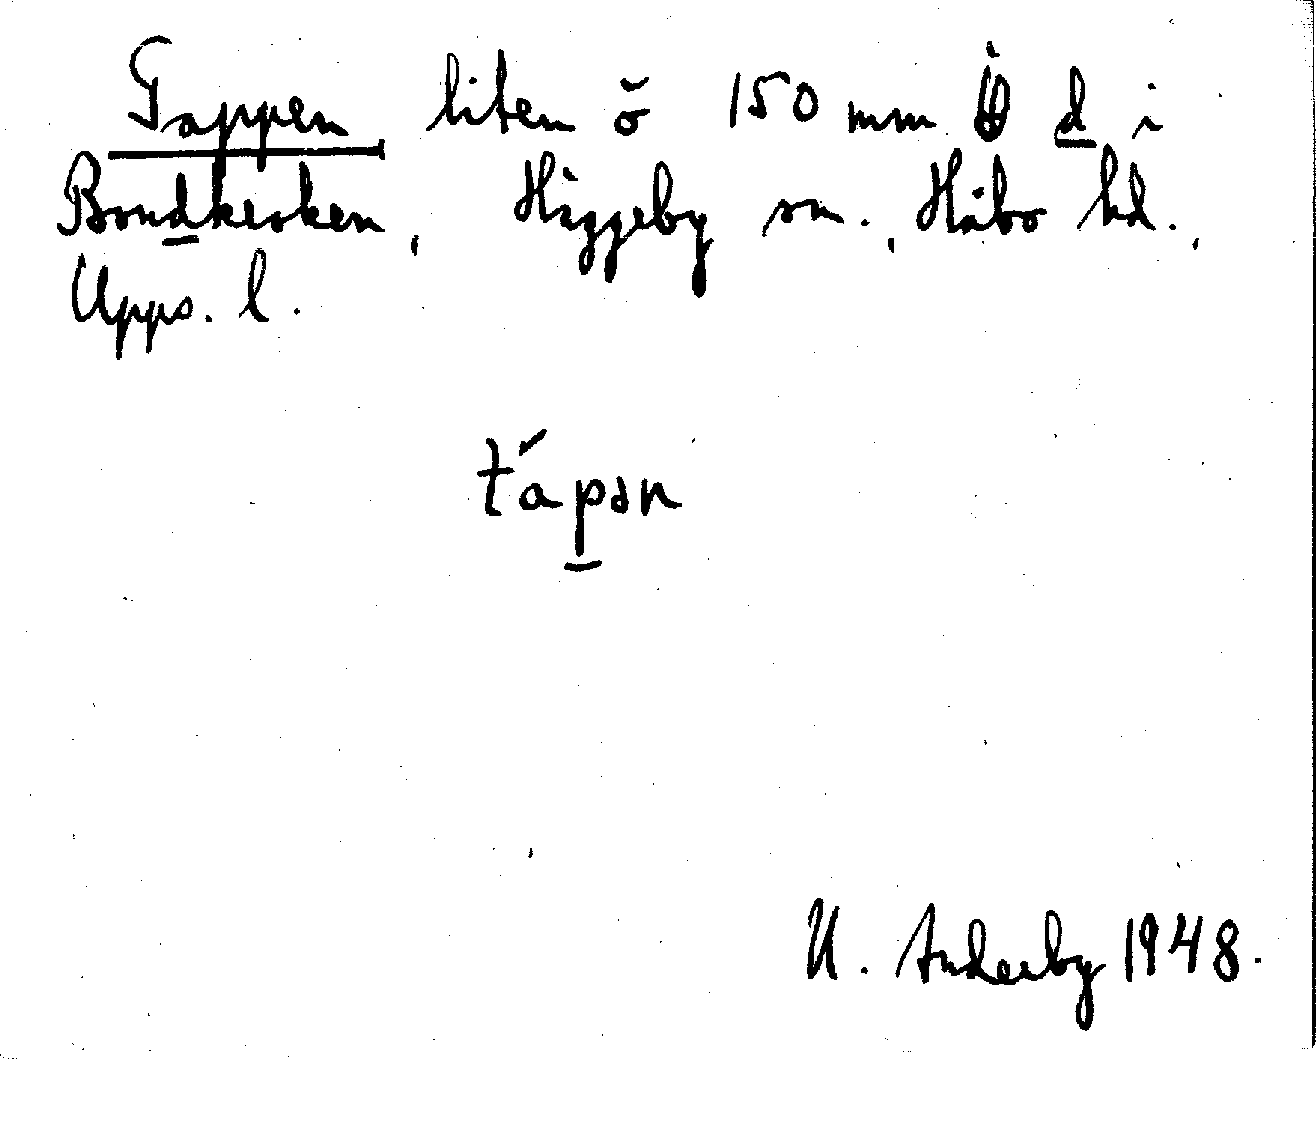 Tappen liten ö 150 mm Ö d i
Bondkroken, Häggeby sn., Håbo hd.,
Upps. l.
tápan
U. Anderby 1948.